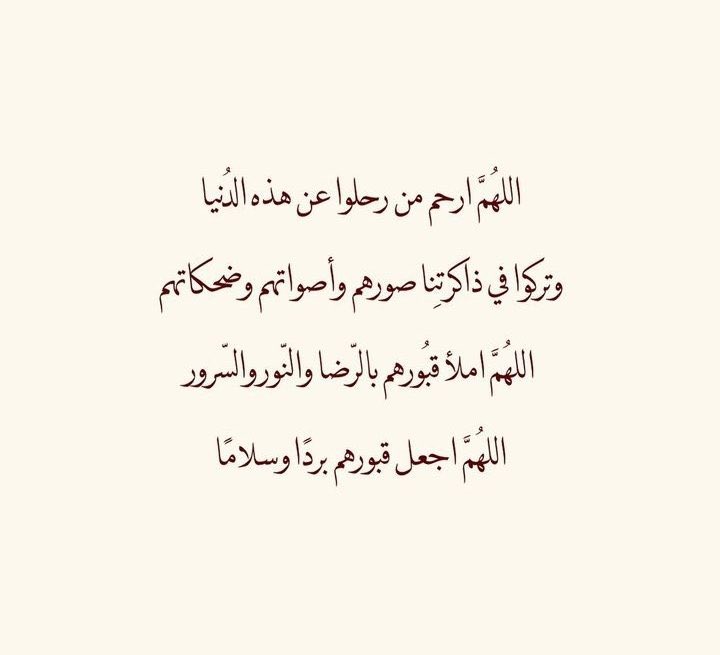 اللهُمَّ ارحم من رحلوا عن هذه الدُنيا
وتركوا في ذاكرتِنا صورهم وأصواتهم وضحكاتهم
اللهُمَّ املأ قبُورهم بالرّضا والنّور والسّرور
اللهُمَّ اجعل قبورهم بردًا وسلامًا